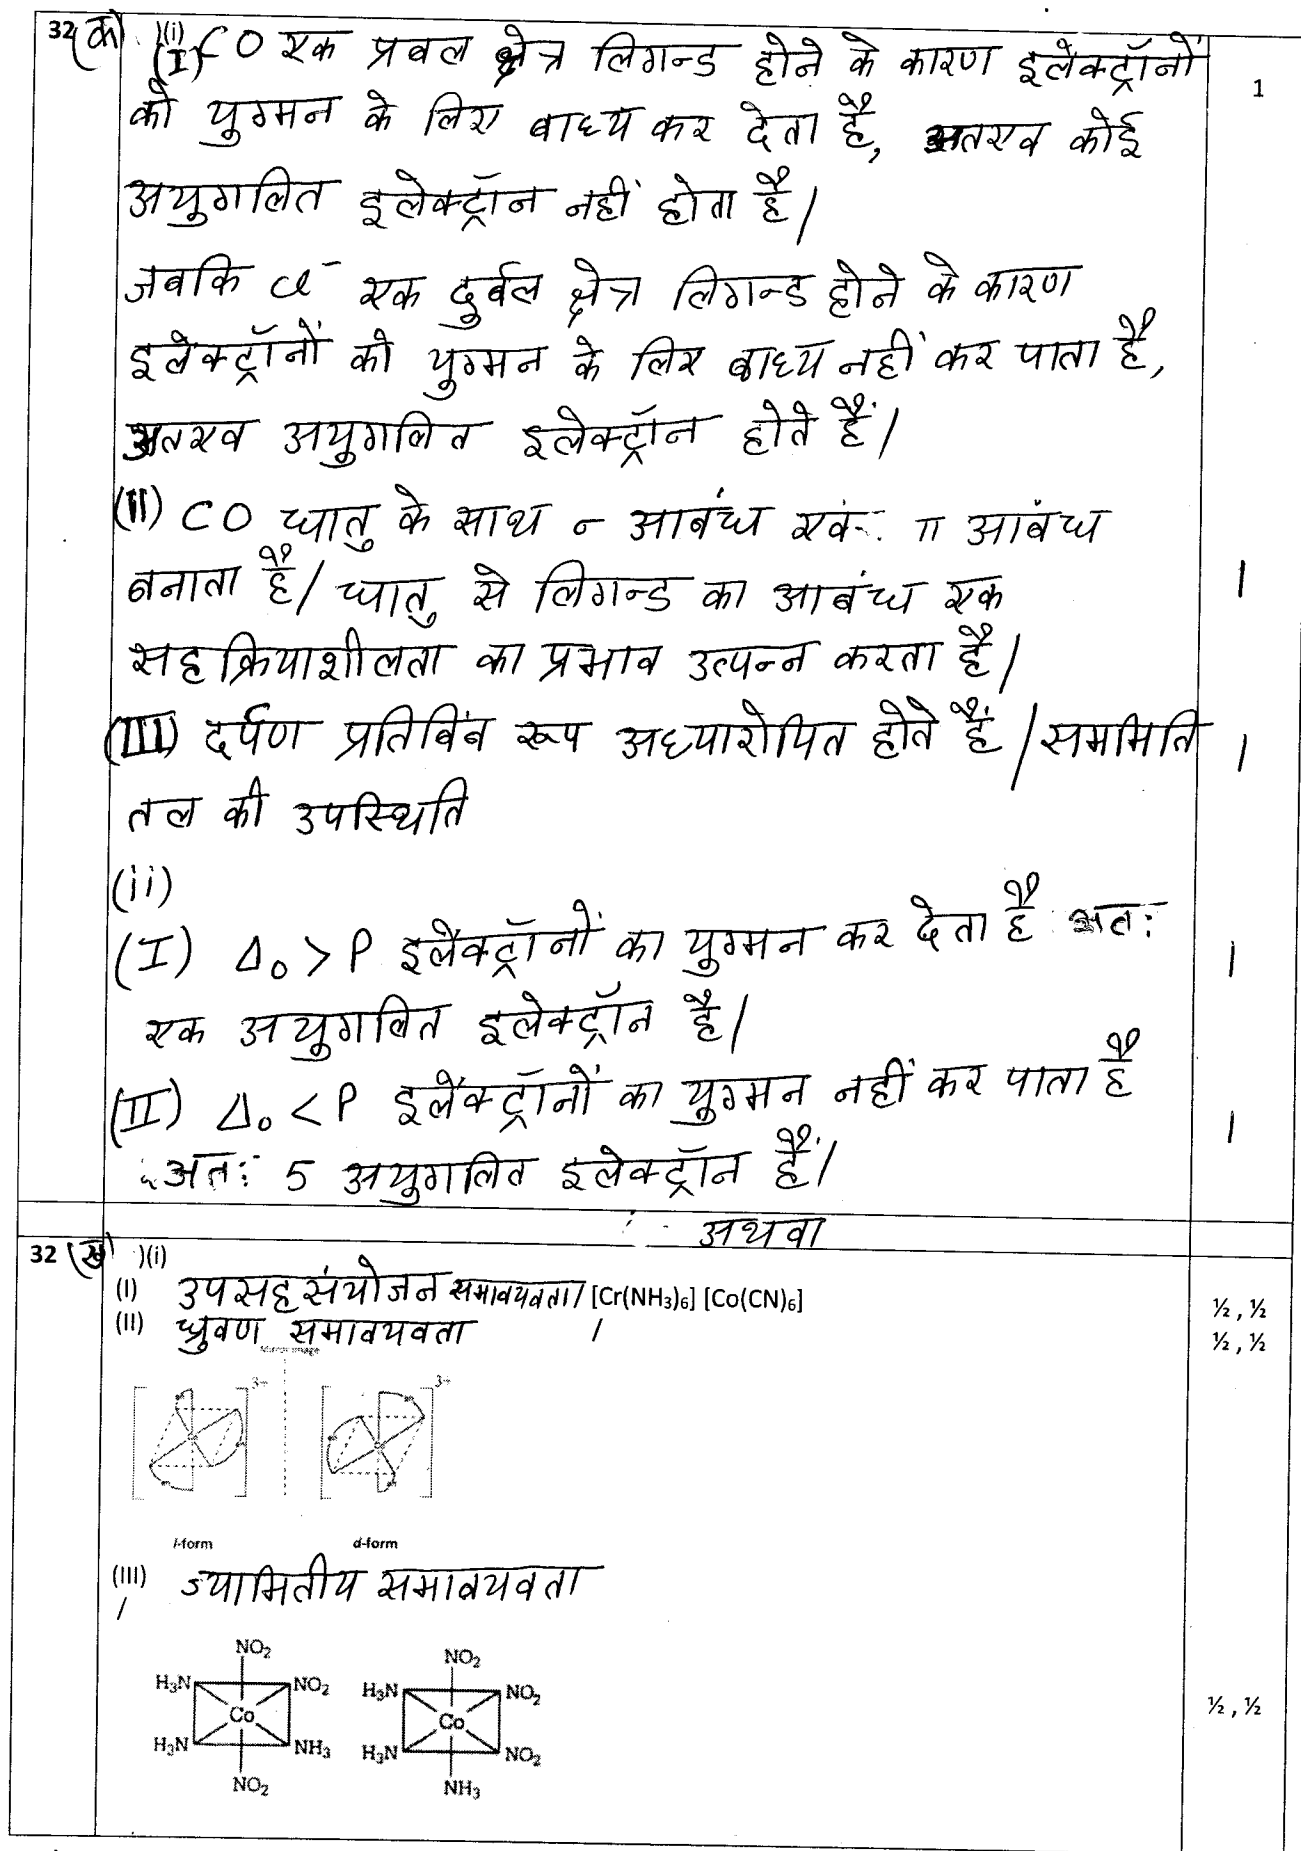 32 (क) (i)
(I) CO एक प्रबल क्षेत्र लिगन्ड होने के कारण इलेक्ट्रॉनों
को युग्मन के लिए बाध्य कर देता है, अतएव कोई
1
अयुगलित इलेक्ट्रॉन नहीं होता है।
जबकि Cl⁻ एक दुर्बल क्षेत्र लिगन्ड होने के कारण
इलेक्ट्रॉनों को युग्मन के लिए बाध्य नहीं कर पाता है,
अतएव अयुगलित इलेक्ट्रॉन होते हैं।
(II) CO धातु के साथ σ आबंध एवं π आबंध
बनाता है। धातु से लिगन्ड का आबंध एक
1
सहक्रियाशीलता का प्रभाव उत्पन्न करता है।
(III) दर्पण प्रतिबिंब रूप अध्यारोपित होते हैं / सममिति
1
तल की उपस्थिति
(ii)
(I) Δ₀ > P इलेक्ट्रॉनों का युग्मन कर देता है अतः
1
एक अयुगलित इलेक्ट्रॉन है।
(II) Δ₀ < P इलेक्ट्रॉनों का युग्मन नहीं कर पाता है
1
अतः 5 अयुगलित इलेक्ट्रॉन हैं।
अथवा
32 (ख) )(i)
(I) उपसहसंयोजन समावयवता / [Cr(NH₃)₆] [Co(CN)₆]
½ , ½
(II) ध्रुवण समावयवता /
½ , ½
Mirror image
3+
3+
l-form
d-form
(III) ज्यामितीय समावयवता
/
NO₂
NO₂
H₃N NO₂ H₃N NO₂
Co Co
½ , ½
H₃N NH₃ H₃N NO₂
NO₂ NH₃